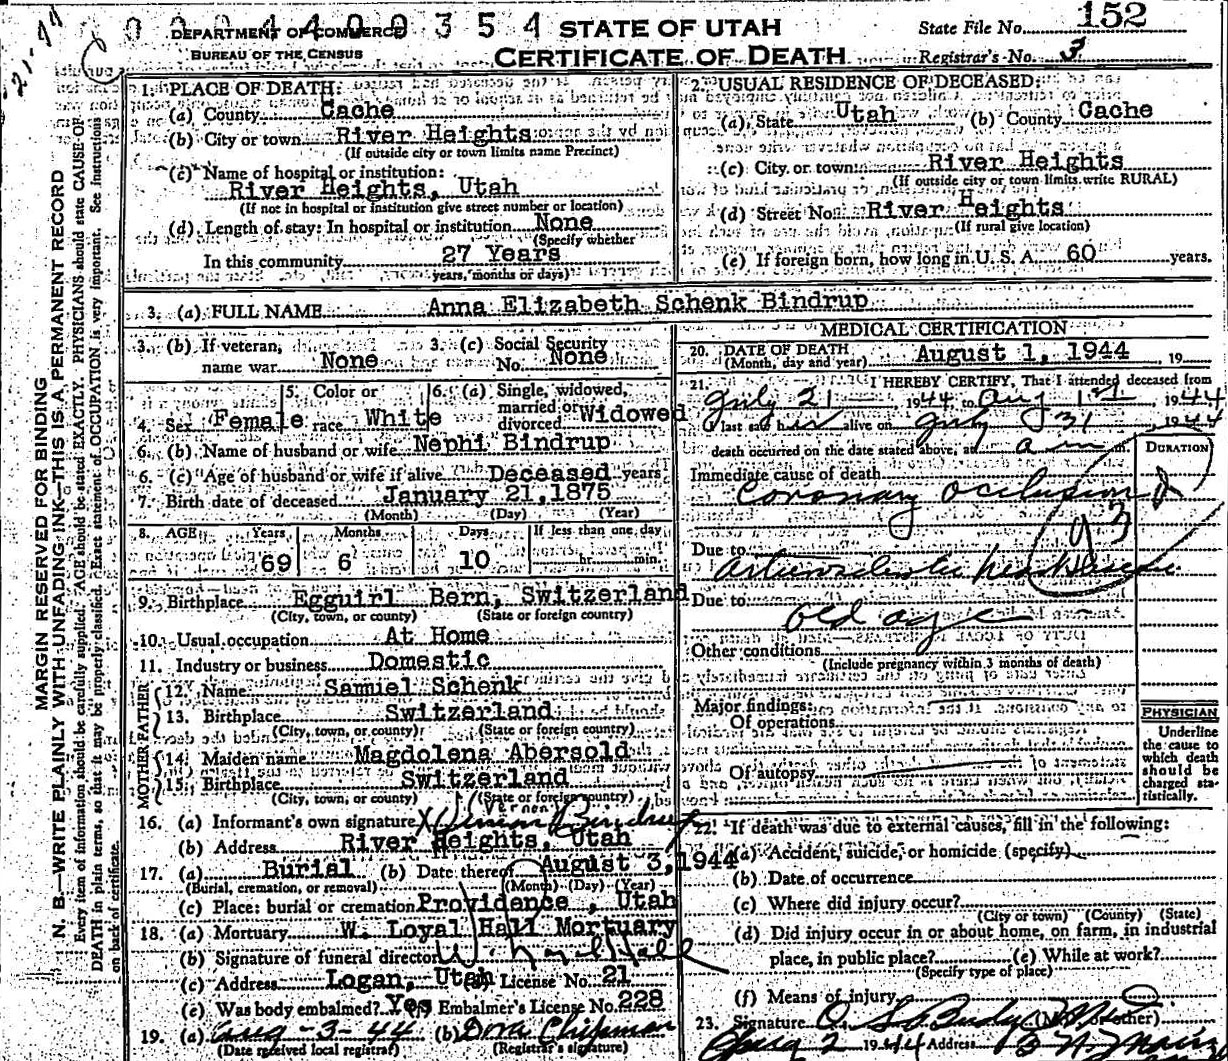 0 2 0 4 4 0 0 3 5 4
DEPARTMENT OF COMMERCE
BUREAU OF THE CENSUS
STATE OF UTAH
CERTIFICATE OF DEATH
State File No. 152
Registrar's No. 3
MARGIN RESERVED FOR BINDING
N. B.—WRITE PLAINLY WITH UNFADING INK—THIS IS A PERMANENT RECORD
Every item of information should be carefully supplied. AGE should be stated EXACTLY. PHYSICIANS should state CAUSE OF
DEATH in plain terms, so that it may be properly classified. Exact statement of OCCUPATION is very important. See instructions
on back of certificate.
1. PLACE OF DEATH:
(a) County Cache
(b) City or town River Heights
(If outside city or town limits name Precinct)
(c) Name of hospital or institution:
River Heights, Utah
(If not in hospital or institution give street number or location)
(d) Length of stay: In hospital or institution None
(Specify whether
In this community 27 Years
years, months or days)
2. USUAL RESIDENCE OF DECEASED:
(a) State Utah (b) County Cache
(c) City or town River Heights
(If outside city or town limits write RURAL)
(d) Street No. River Heights
(If rural give location)
(e) If foreign born, how long in U. S. A. 60 years.
3. (a) FULL NAME Anna Elizabeth Schenk Bindrup
3. (b) If veteran, name war None
3. (c) Social Security No. None
4. Sex Female
5. Color or race White
6. (a) Single, widowed, married or divorced Widowed
6. (b) Name of husband or wife Nephi Bindrup
6. (c) Age of husband or wife if alive Deceased years
7. Birth date of deceased January 21, 1875
(Month) (Day) (Year)
8. AGE Years 69 Months 6 Days 10 If less than one day hr. min.
9. Birthplace Egguirl Bern, Switzerland
(City, town, or county) (State or foreign country)
10. Usual occupation At Home
11. Industry or business Domestic
FATHER
12. Name Samiel Schenk
13. Birthplace Switzerland
(City, town, or county) (State or foreign country)
MOTHER
14. Maiden name Magdolena Abersold
15. Birthplace Switzerland
(City, town, or county) (State or foreign country)
16. (a) Informant's own signature X Vernon Bindrup
(b) Address River Heights, Utah
17. (a) Burial (b) Date thereof August 3, 1944
(Burial, cremation, or removal) (Month) (Day) (Year)
(c) Place: burial or cremation Providence, Utah
18. (a) Mortuary W. Loyal Hall Mortuary
(b) Signature of funeral director W. Loyal Hall
(c) Address Logan, Utah (d) License No. 21
(e) Was body embalmed? Yes Embalmer's License No. 228
19. (a) Aug-3-44 (b) Dora
(Date received local registrar) (Registrar's signature)
MEDICAL CERTIFICATION
20. DATE OF DEATH August 1, 1944, 19
(Month, day and year)
21. I HEREBY CERTIFY, That I attended deceased from
July 21 1944 to Aug 1st 1944
I last saw her alive on July 31 1944
death occurred on the date stated above, at a m.
DURATION
Immediate cause of death
Coronary occlusion
93
Due to
Due to
old age
Other conditions
(Include pregnancy within 3 months of death)
Major findings:
Of operations
Of autopsy
PHYSICIAN
Underline
the cause to
which death
should be
charged sta-
tistically.
22. If death was due to external causes, fill in the following:
(a) Accident, suicide, or homicide (specify)
(b) Date of occurrence
(c) Where did injury occur?
(City or town) (County) (State)
(d) Did injury occur in or about home, on farm, in industrial
place, in public place? (e) While at work?
(Specify type of place)
(f) Means of injury
23. Signature O. S. Budge (M. D. or other)
Aug 2 1944 Address